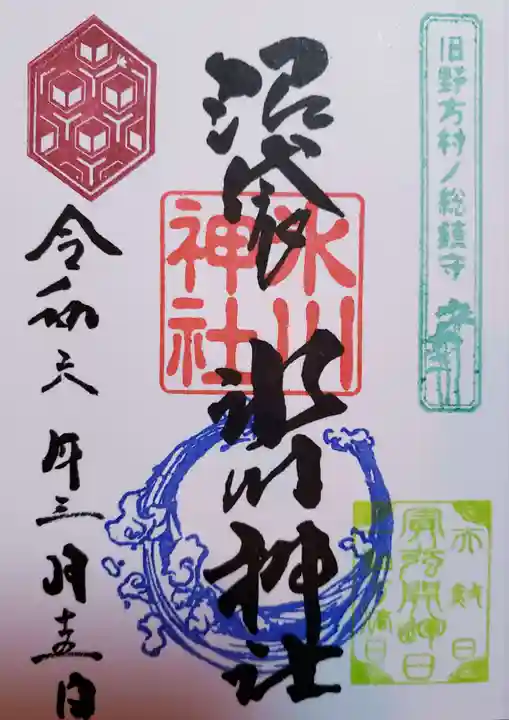 旧野方村ノ総鎮守
沼袋氷川神社
氷川
神社
令和六年三月十五日